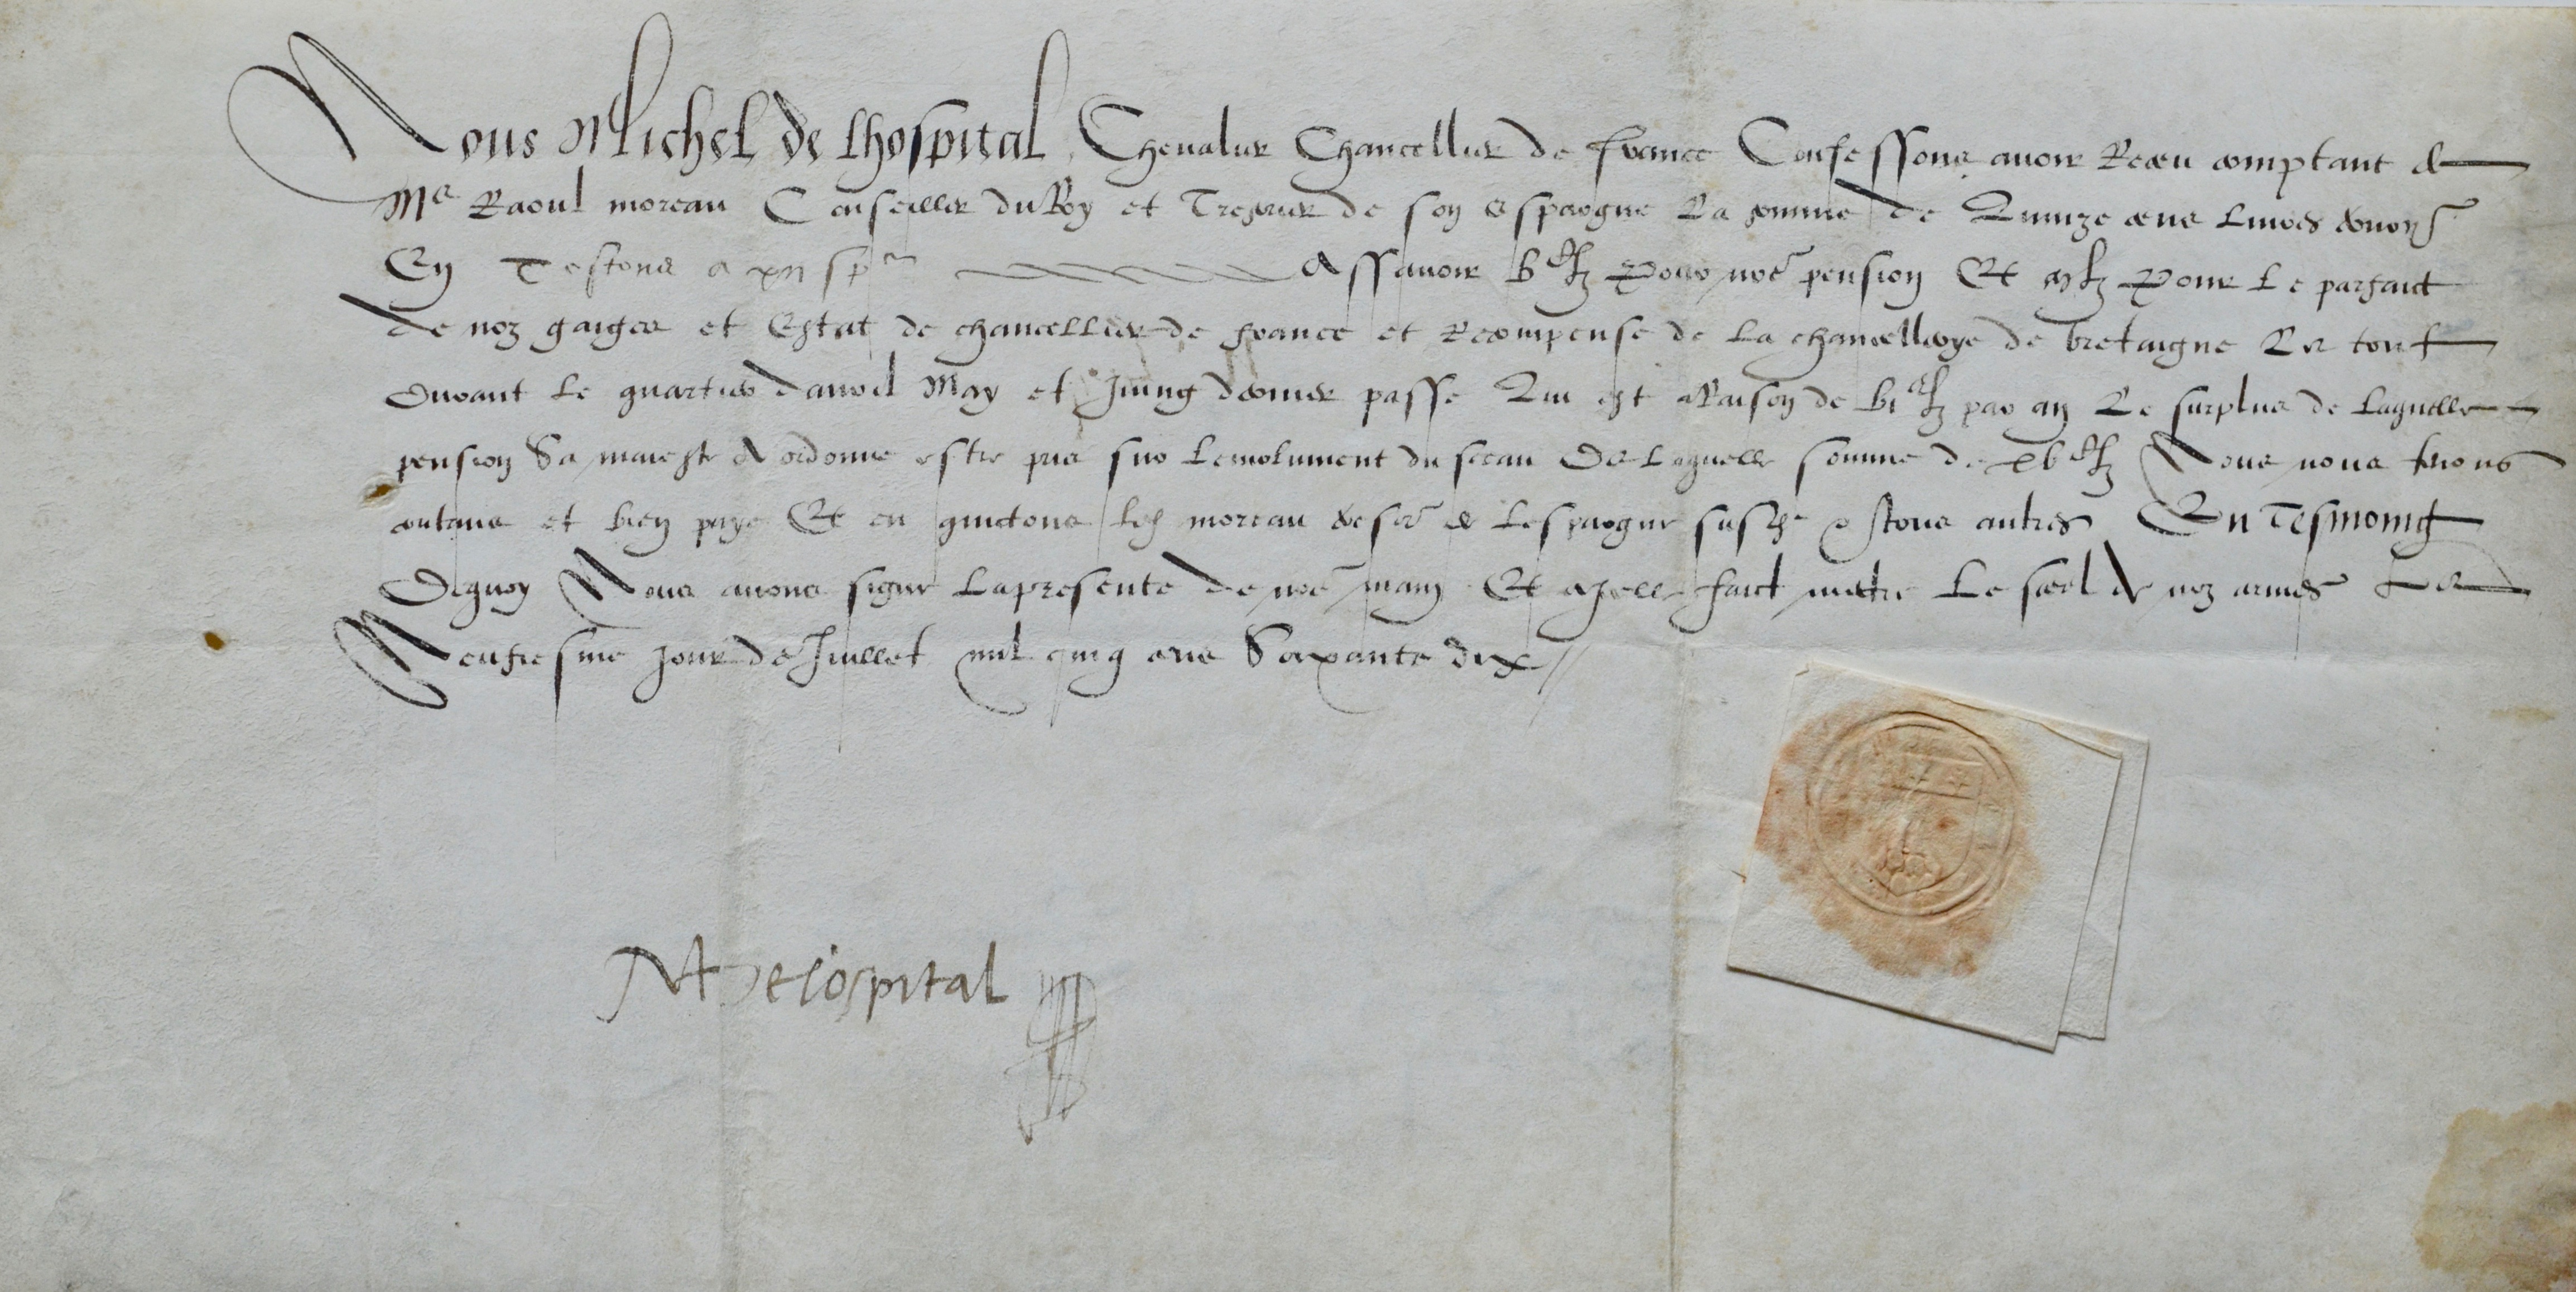 Nous Michel de Lhospital Chevalier Chancellier de france Confessons avoir Receu comptant de
Me Raoul moreau Conseiller du Roy et Tresorier de son espargne La somme de Quinze cens livres
En Testons a xii s pce Assavoir vc lt Pour nre pension Et m lt Pour Le parfaict
de noz gaiges et Estat de chancellier de france et Recompense de La chancellerye de bretaigne Le tout
Durant Le quartier davril May et Juing dernier passe Qui est a Raison de par an Le surplus de Laquelle
pension Sa maieste A ordonne estre pris sur Lemolument du sceau De Laquelle somme de xvc lt Nous nous tenons
contans et bien paye Et en quictons led moreau tresor de Lespargne susd et tous autres En Tesmoing
De quoy Nous avons signe La presente de nre main Et a Icelle faict mettre Le scel de noz armes Le
Neufiesme Jour de Juillet mil cinq cens Soixante dix
M de lospital